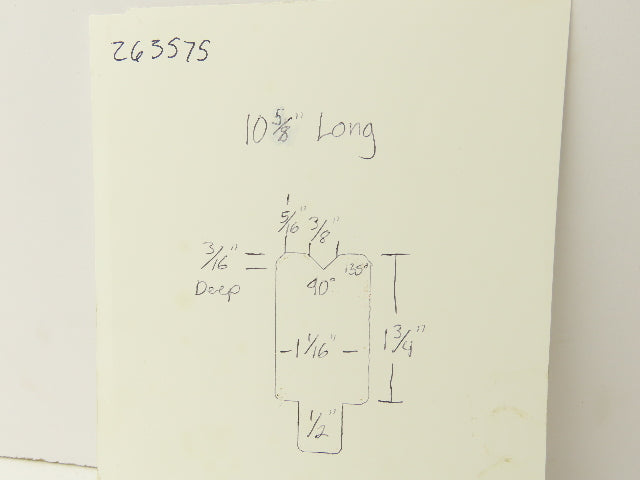 263575
10 5/8" Long
5/16" 3/8"
3/16"
Deep
135°
90°
1 1/16"
1 3/4"
1/2"